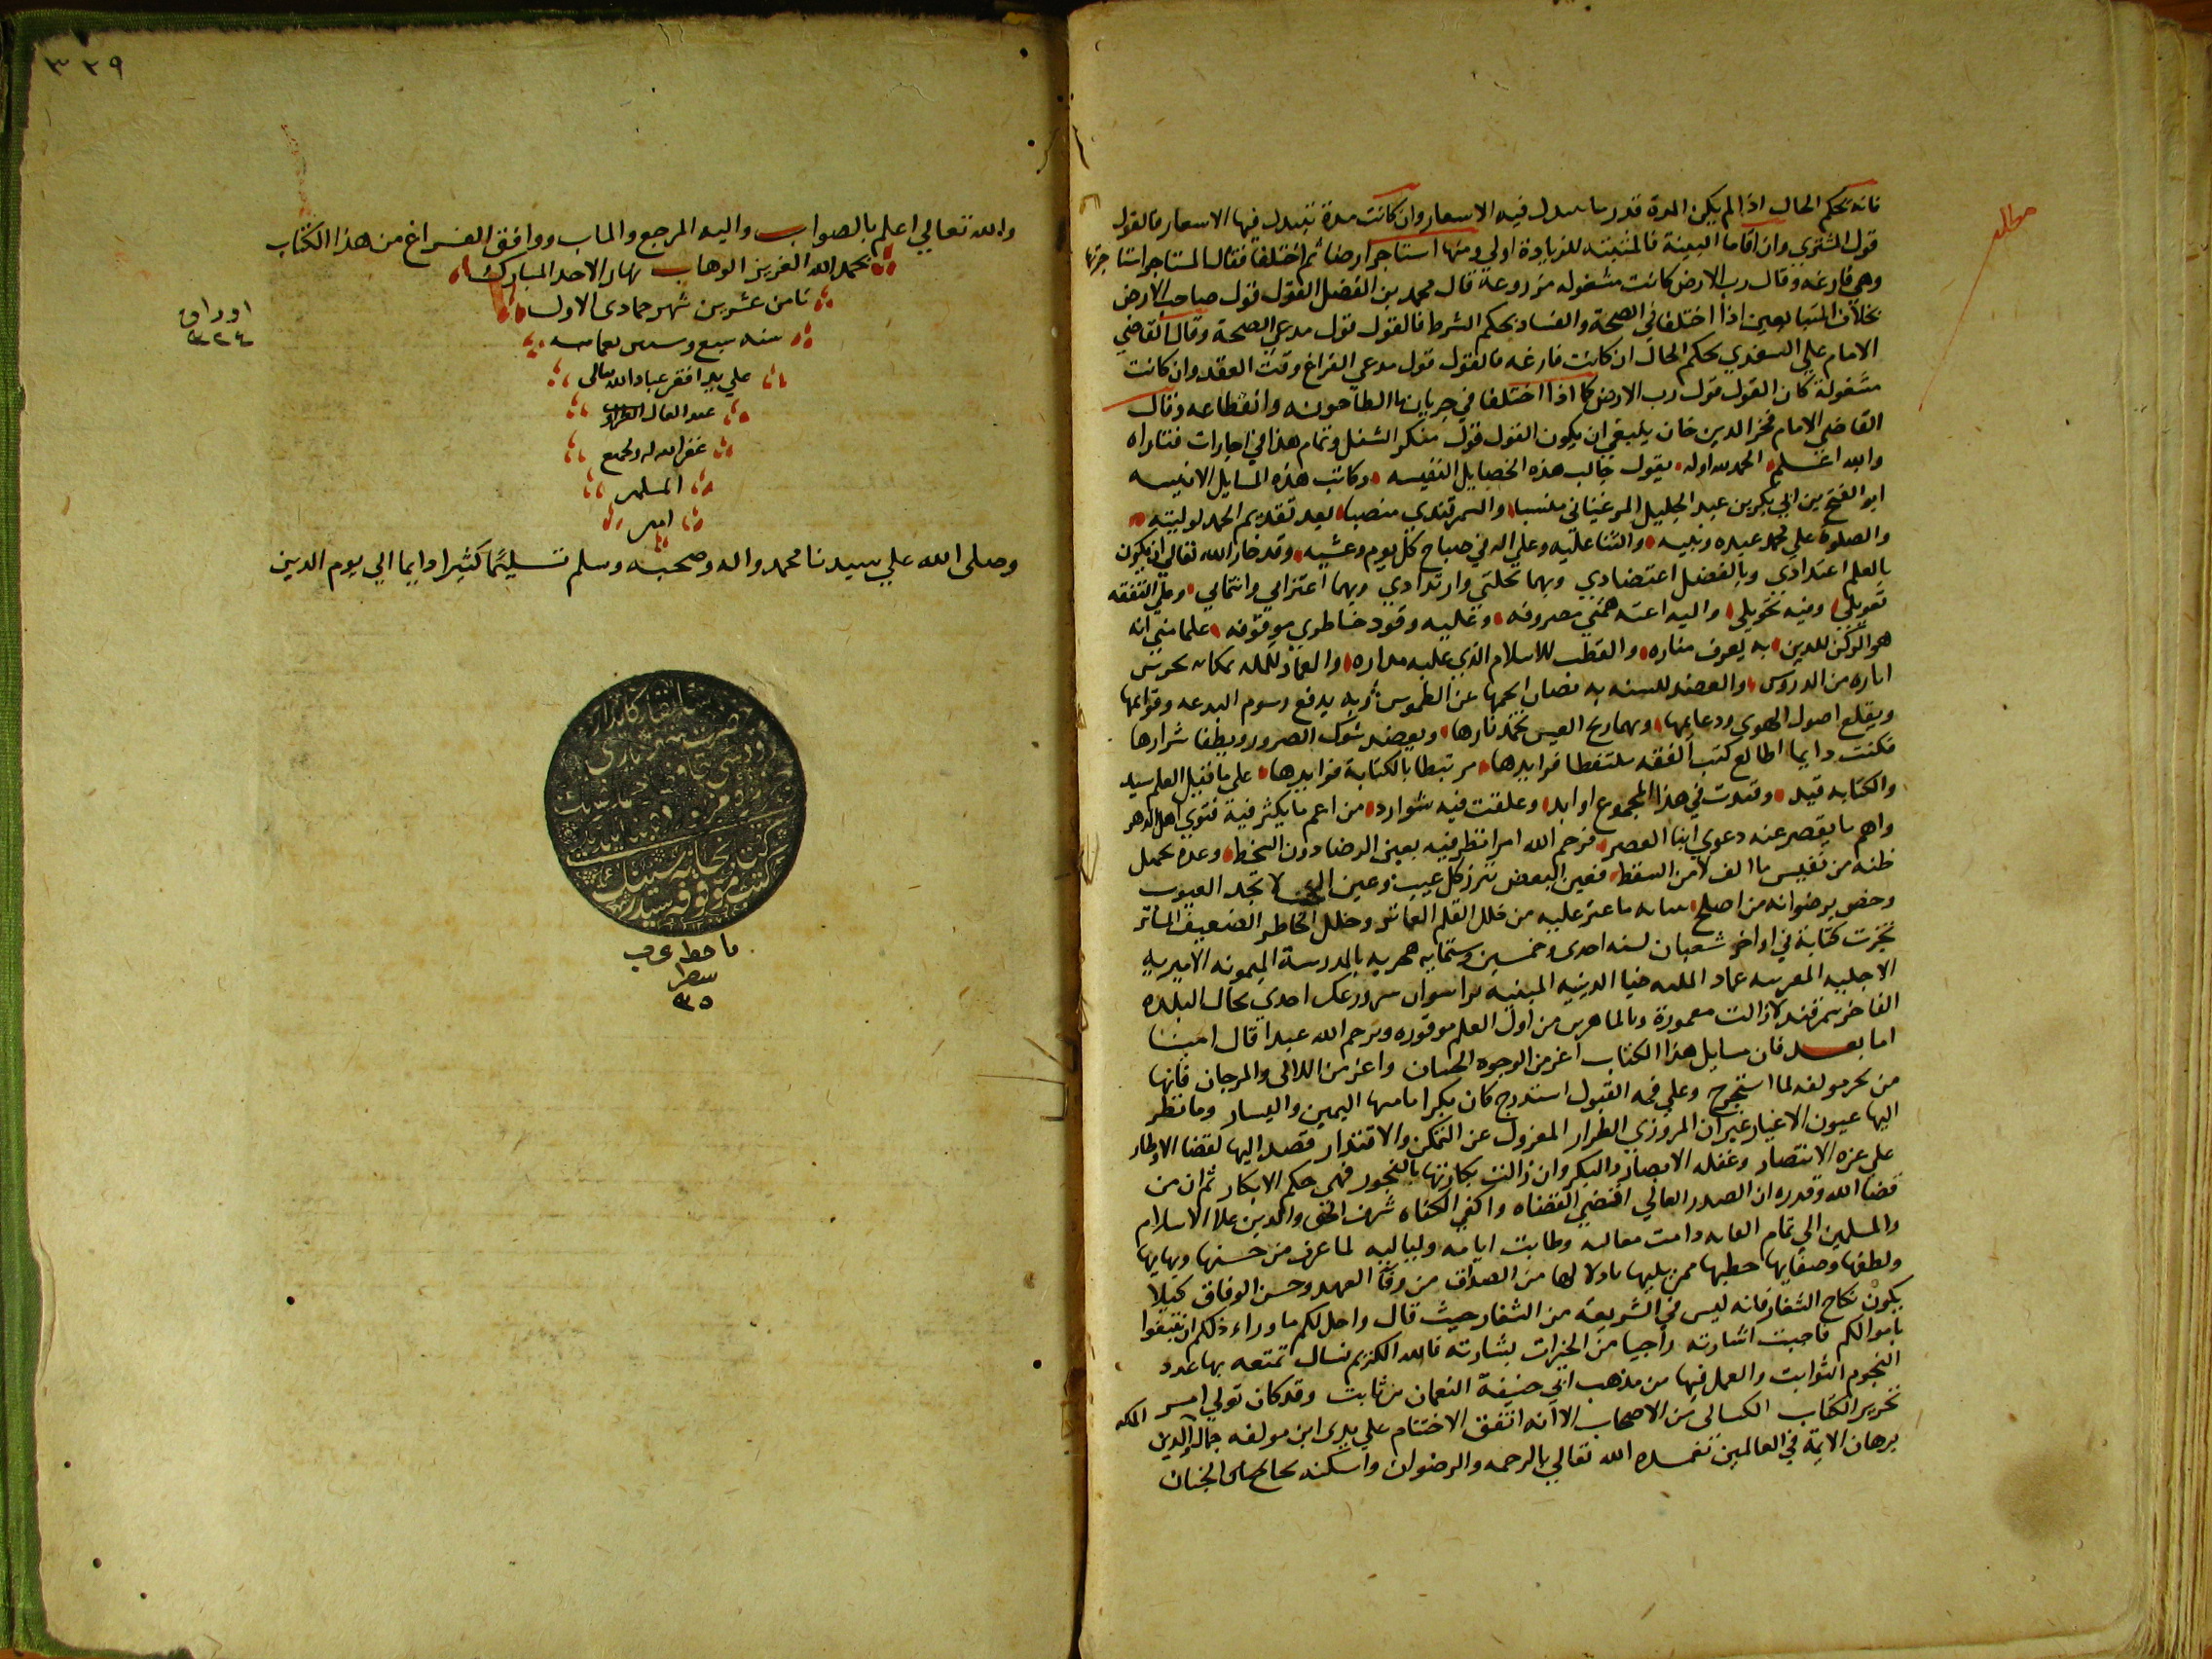 فانه يحكم الحال اذا لم يكن المدة قدر ما يتبدل فيه الاسعار وان كانت مدة تتبدل فيها الاسعار فالقول
قول المشتري وان اقاما البينة فالمثبتة للزيادة اولي ومنها استاجر ارضا ثم اختلفا فقال المستاجر استاجرتها
وهي فارغه وقال رب الارض كانت مشغوله مزروعة قال محمد بن الفضل القول قول صاحب الارض
بخلاف المتبايعين اذا اختلفا في الصحة والفساد بحكم الشرط فالقول قول مدعي الصحة وقال القاضي
الامام علي السغدي يحكم الحال ان كانت فارغه فالقول قول مدعي الفراغ وقت العقد وان كانت
مشغولة كان القول قول رب الارض كما اذا اختلفا في جريان ماء الطاحونه وانقطاعه وقال
القاضي الامام فخر الدين خان ينبغي ان يكون القول قول منكر الشغل وتمام هذا في اجارات فتاواه
والله اعلم الحمد لله اوله يقول جالب هذه الخصايل النفيسه وكاتب هذه المسايل الانيسه
ابو الفتح بن ابي بكر بن عبد الجليل المرغيناني منسبا والسمرقندي منصبا بعد تقديم الحمد لوليته
والصلوة علي محمد عبده ونبيه والثنا عليه وعلي اله في صباح كل يوم وعشيه وقد خار الله تعالي ان يكون
بالعلم اعتدادي وبالفضل اعتضادي وبهما تحلتي وارتدادي وبهما اعتزاي وانتمالي وعلي التفقه
تعويلي وفيه تخويلي واليه اعنة همتي مصروفه وعليه وقود خاطري موقوفه علما مني انه
هو الركن للدين به يعرف مناره والقطب للاسلام الذي عليه مداره والعماد للمله بمكانه تحرس
اثاره من الدروس والعضد للسنه به تصان عن الطموس وبه يدفع رسوم البدعه وقوايمها
ويقلع اصول الهوي ودعايمها تخمد نارها ويعضد شوك ويطفا شرارها
فكنت دايما اطالع كتب الفقه ملتقطا فرايدها مرتبطا بالكتابة فوايدها علي ما قيل العلم سيد
والكتابه قيد وقيدت في هذا المجموع اوابد وعلقت فيه شوارد من اعم ما يكثر فيه فتوي اهل الدهر
واهم ما يقصر عنه دعوي ابنا العصر فرحم الله امرا نظر فيه بعين الرضا دون السخط وعده بجميل
ظنه من نفيس ما الف لا من السقط فعين البعض تبرز كل عيب وعين لا تجد العيوب
وخص برضوانه من اصلح ما عثر عليه من خلل القلم العاثر وخلل الخاطر الضعيف الماثر
نجزت كتابة في اواخر شعبان لسنه احدى وخمسين وستمايه هجريه بالمدرسة الميمونه الاميريه
الاجليه عماد المله ضيا الدينيه المبنيه احدي محال البلده
الفاخره سمرقند لازالت معمورة وبالماهرين من اولي العلم موفوره ويرحم الله عبدا قال امينا
اما بعد فان مسايل هذا الكتاب اغر من الوجوه الحسان واعز من اللالى والمرجان فانها
من بحر مولفه لما استخرج وعلي فحه القبول استدرج كان بكرا اليمين واليسار وما نظر
اليها عيون الاغيار غير ان المروزي الطرار المعزول عن التمكن والاقتدار قصد اليها لقضا الاوطار
علي عزه الانتصار وغفله الابصار والبكر وان زالت بكارتها بالفجور فهي حكم الابكار ثم ان من
قضا الله وقدره ان الصدر العالي اقضي القضاه واكفي الكفاه شرف الحق والدين علا الاسلام
والمسلمين الي تمام دامت معاليه وطابت ايامه ولياليه لما عرف من حسنها وبهايها
ولطفها وصفايها خطبها ممن يليها بادلا لها من الصداق من وفا العهد وحسن الوفاق كيلا
يكون نكاح الشغار فانه ليس في الشريعة من الشغار حيث قال واحل لكم ما وراء ذلكم ان تبتغوا
باموالكم فاجبت اشارته راجيا من الخيرات بشارته فالله الكريم نسال تمتعه بها عدد
النجوم الثوابت والعمل فيها من مذهب ابي حنيفة النعمان بن ثابت وقد كان تولي امر
تحرير الكتاب من الاصحاب الا انه اتفق الاختتام علي يدى ابن مولفه جمال الدين
برهان الايمة في العالمين تغمده الله تعالي بالرحمه والرضوان واسكنه الجنان
مطلب
٣٢٩
والله تعالي اعلم بالصواب واليه المرجع والماب ووافق الفراغ من هذا الكتاب
بحمد الله العزيز الوهاب نهار الاحد المبارك
ثامن عشرين شهر جمادى الاول
سنه سبع
علي يد افقر عباد الله تعالى
غفر الله له ولجميع
المسلمين
امين
وصلى الله علي سيدنا محمد واله وصحبه وسلم تسليما كثيرا دايما الي يوم الدين
اوراق
٣٢٤
با خط عرب
سطر
٣٥